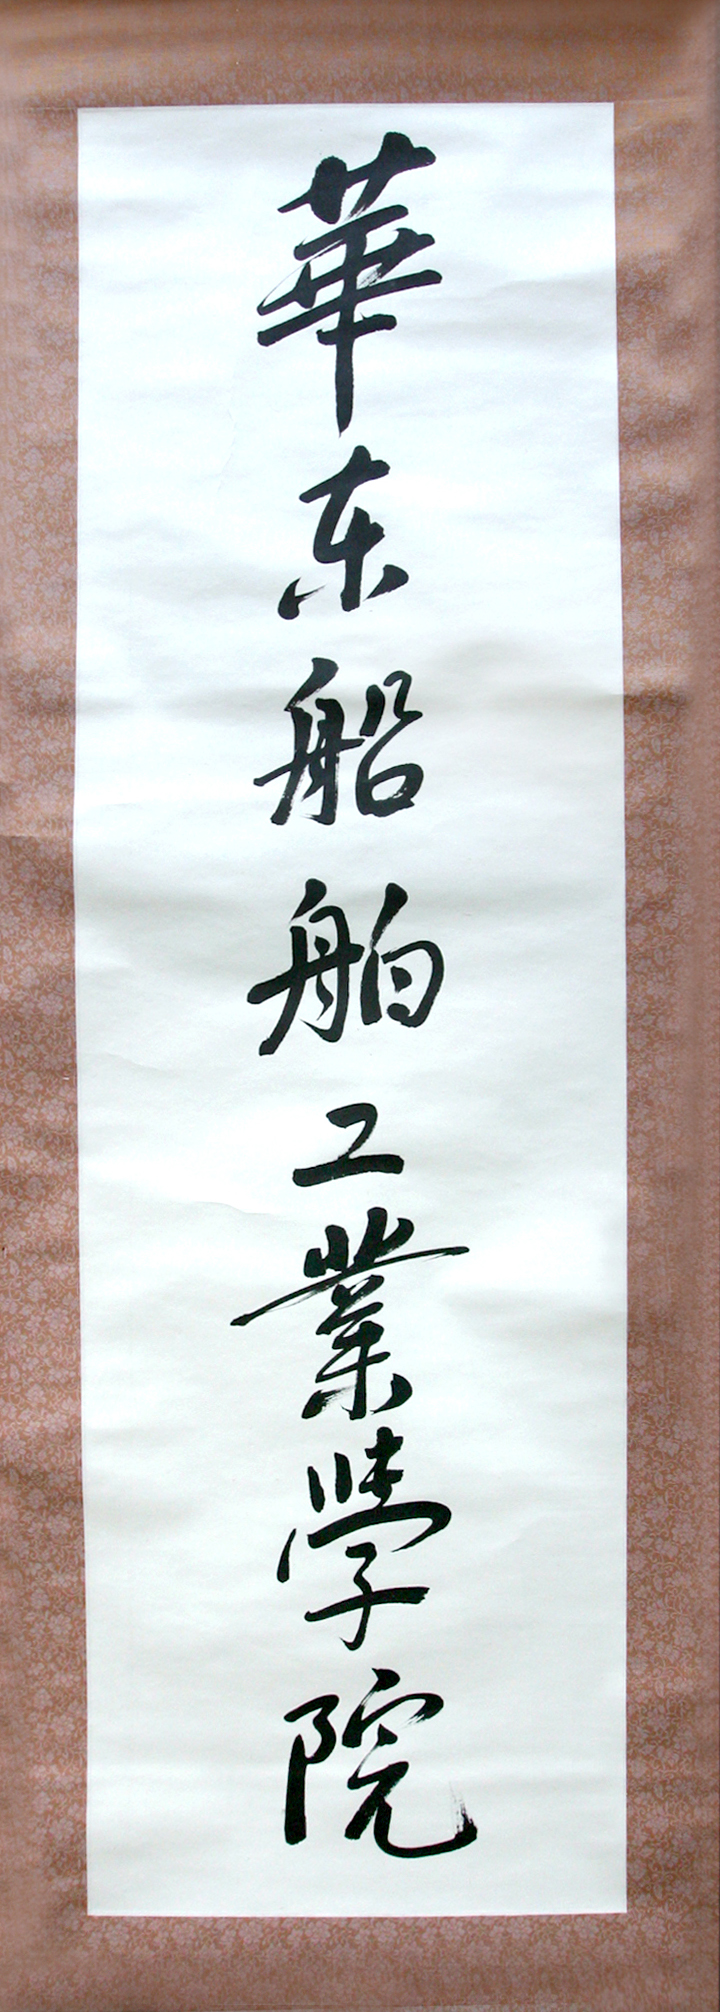 華东船舶工業學院